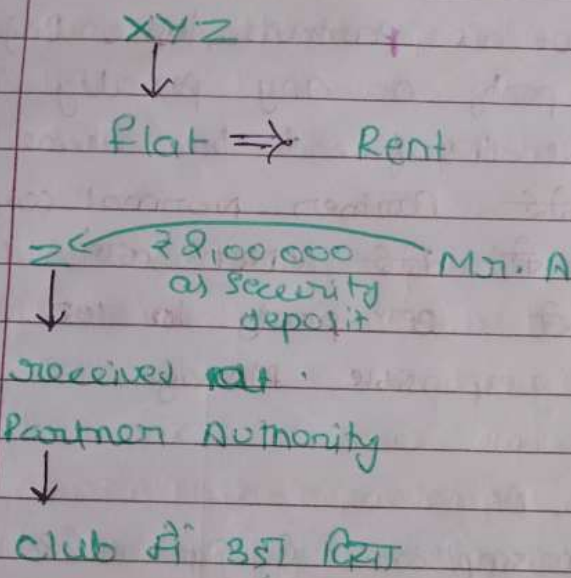 XYZ
↓
flat ⇒ Rent
Z ← ₹2,00,000 Mr. A
as security
deposit
↓
received
Partner Authority
↓
club में उड़ा दिया